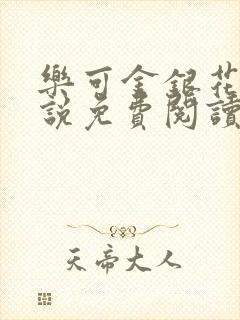 樂可金銀花
說免費閱讀
天帝大人